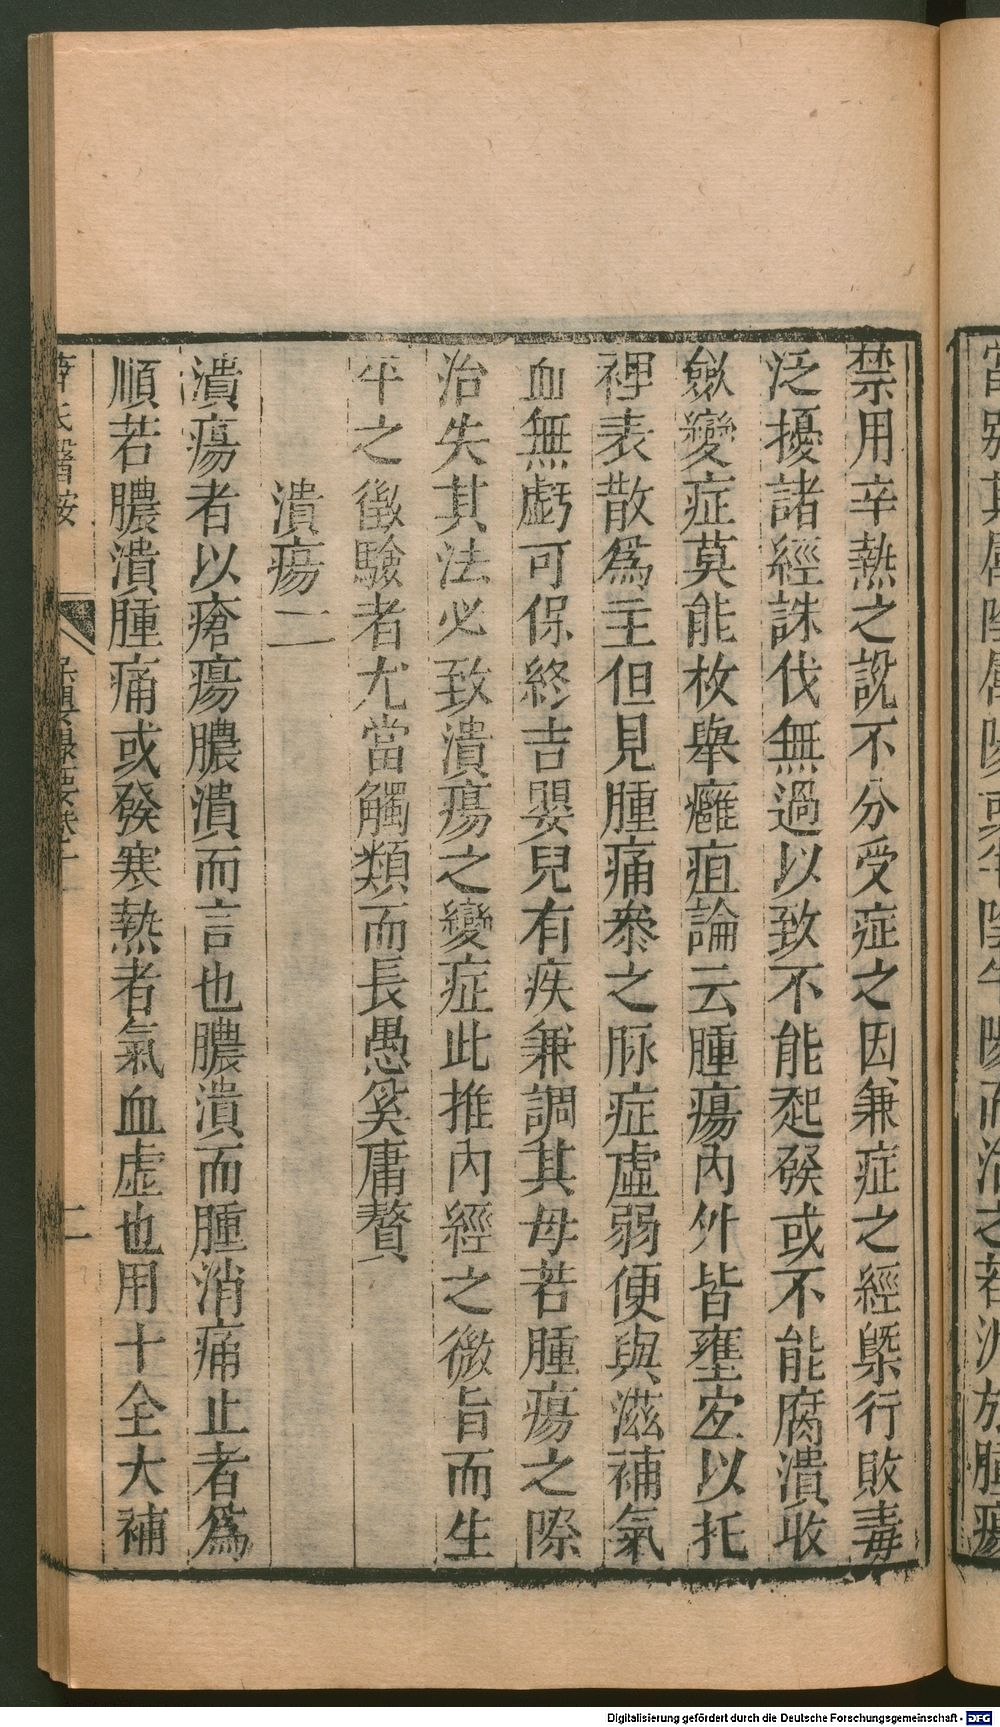 當別其屬陰屬陽或半陰半陽而治之若泥於腫瘍
禁用辛熱之說不分受症之因兼症之經槩行敗毒
泛擾諸經誅伐無過以致不能起發或不能腐潰收
斂變症莫能枚舉癰疽論云腫瘍內外皆壅宜以托
裡表散為主但見腫痛叅之脉症虛弱便與滋補氣
血無虧可保終吉嬰兒有疾兼調其母若腫瘍之際
治失其法必致潰瘍之變症此推內經之微旨而生
平之徵驗者尤當觸類而長愚奚庸贅
潰瘍二
潰瘍者以瘡瘍膿潰而言也膿潰而腫消痛止者為
順若膿潰腫痛或發寒熱者氣血虛也用十全大補
薛氏醫按
二
Digitalisierung gefördert durch die Deutsche Forschungsgemeinschaft - DFG